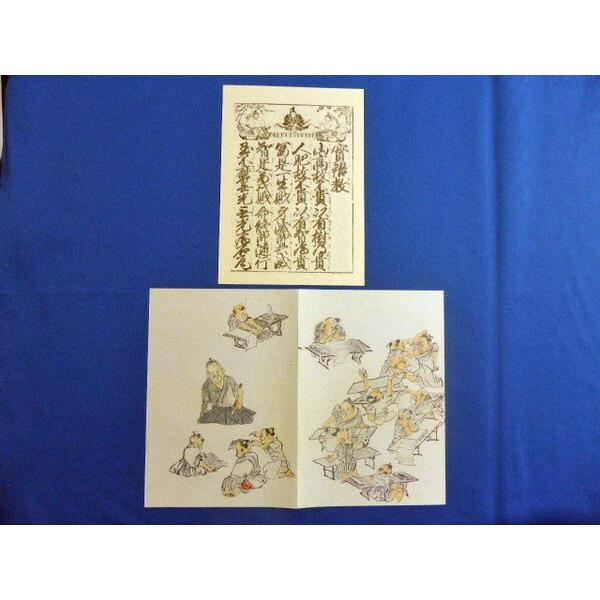 實語教
山高故不貴以有樹為貴
人肥故不貴以有智為貴
冨是一生財身滅即共滅
智是万代財命終即随行
玉不磨無光無光為石瓦